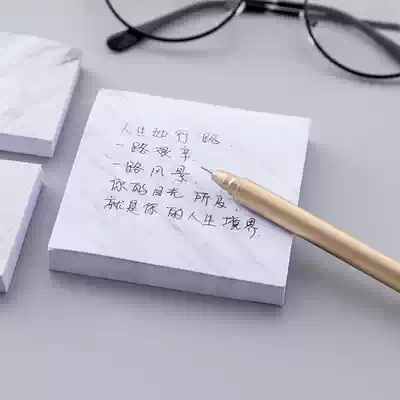 人生如行路.
一路艰辛.
一路风景.
你的目光 所及.
就是你的人生境界.